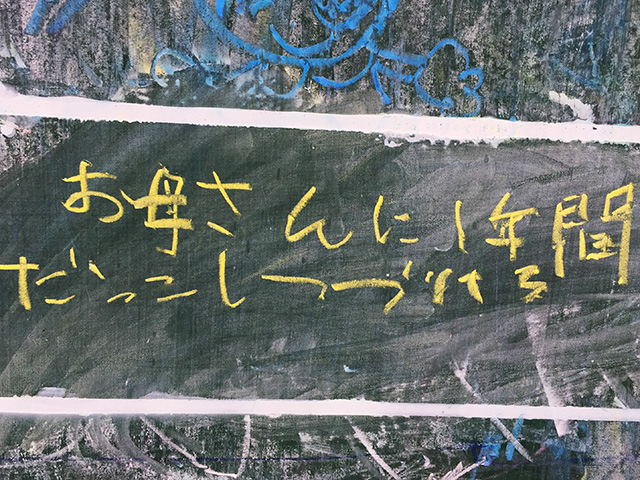 お母さんに1年間
だっこしつづける